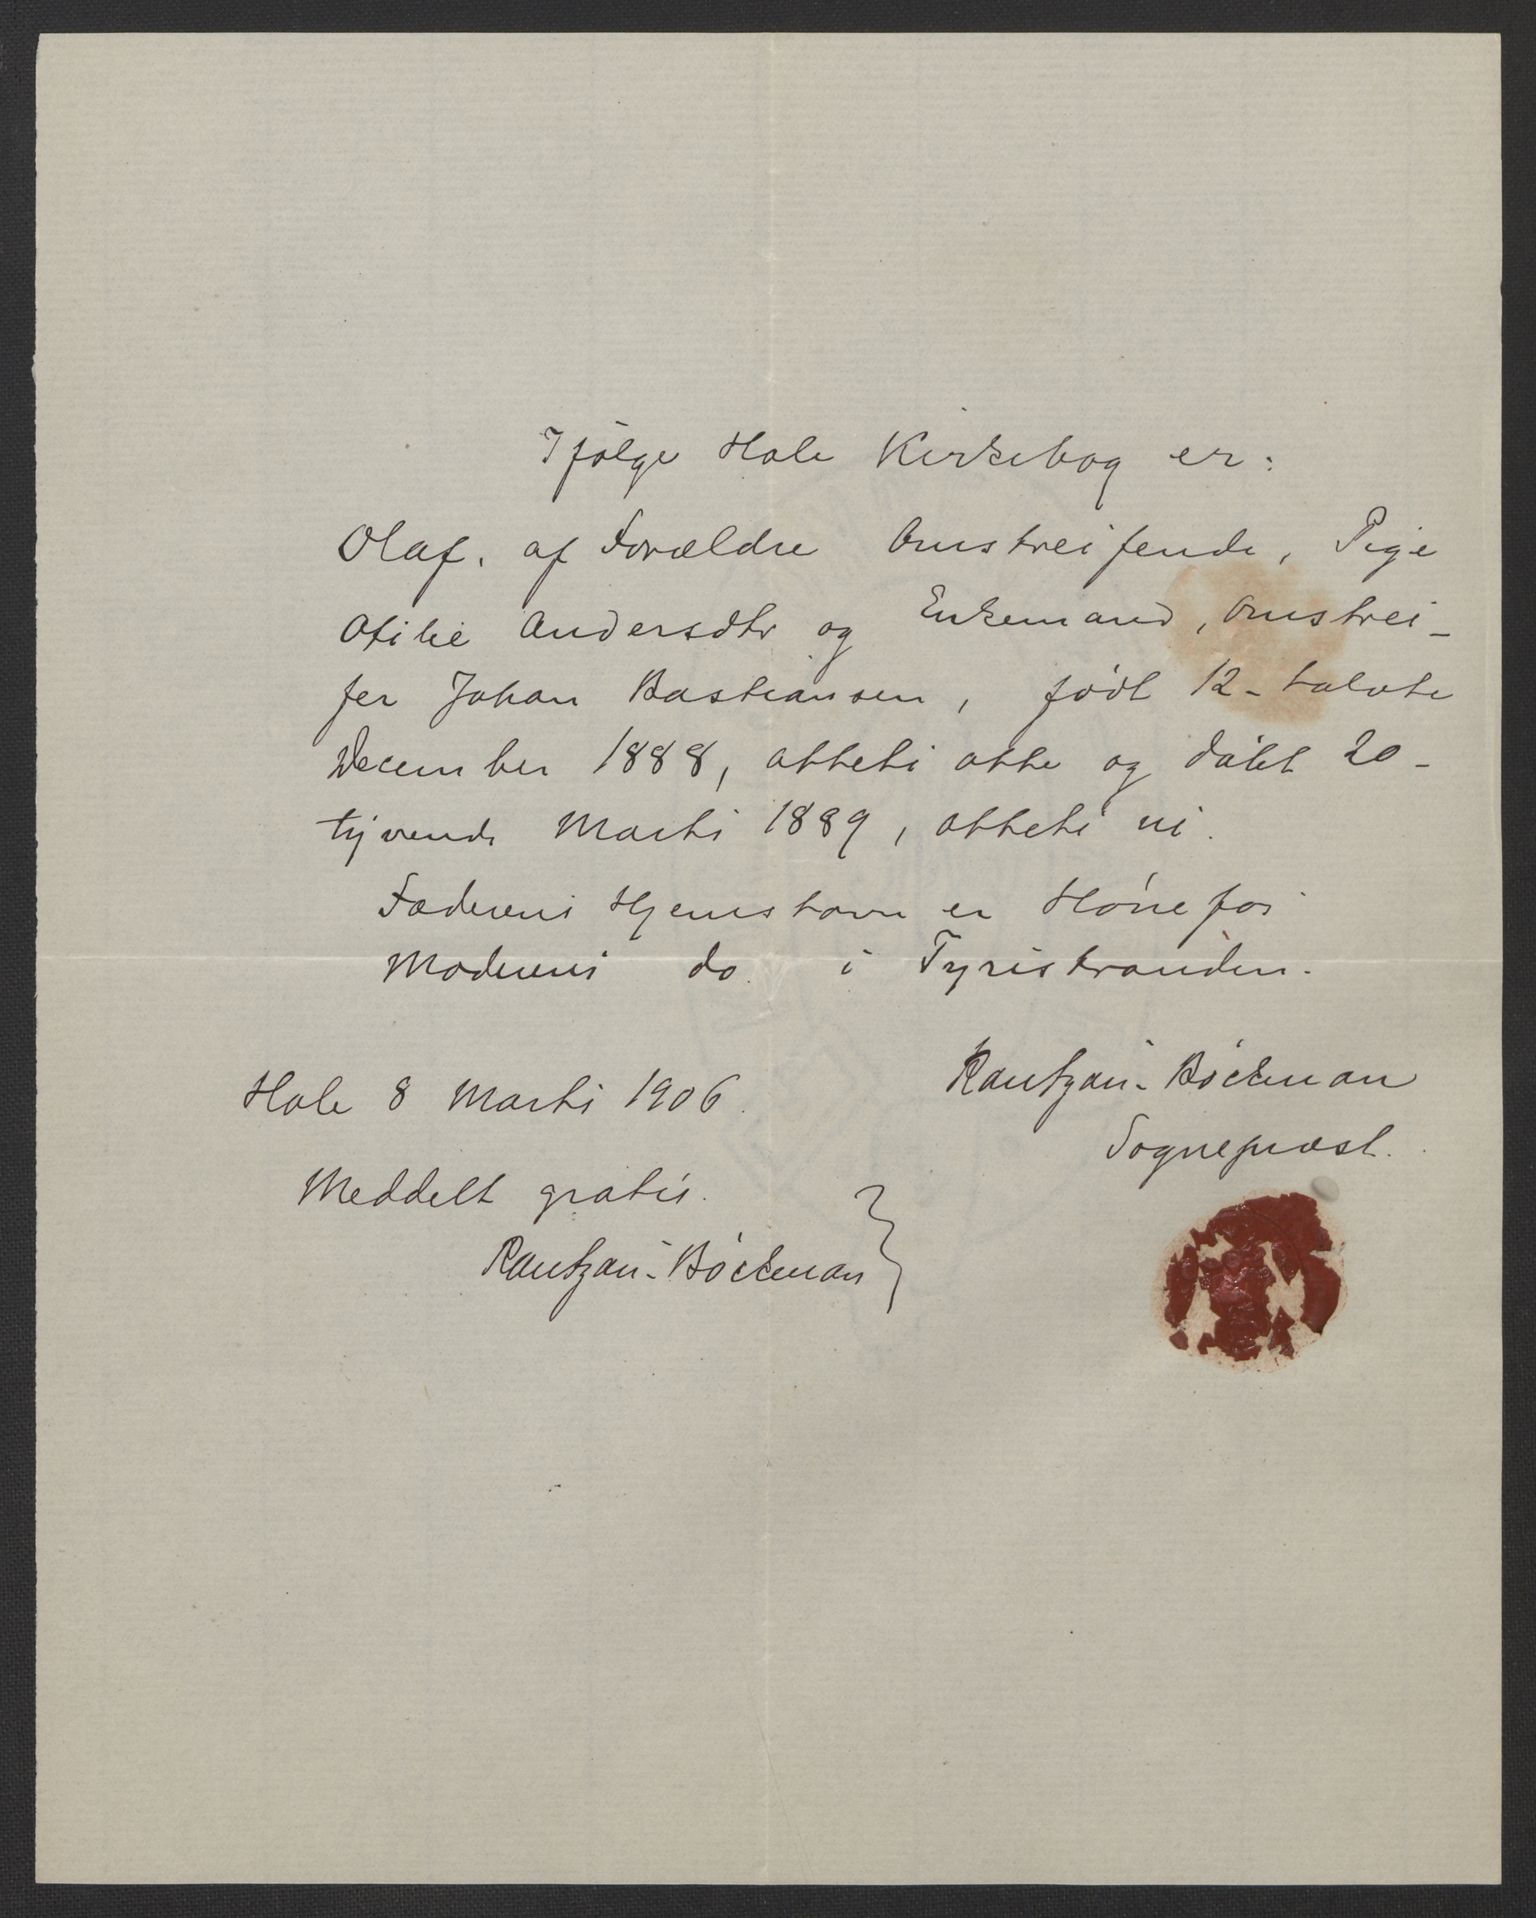 Ifølge Hole Kirkebog er:
Olaf, af Forældre Omstreifende, Pige
Otilie Andersdtr og Enkemand, Omstrei-
fer Johan Bastiansen, født 12-tolvte
December 1888, otteti otte og døbt 20-
tyvende Marts 1889, otteti ni.
Faderens Hjemstavn er Hønefos
Moderens do. i Tyristranden.
Hole 8 Marts 1906.
Rantzau-Böckman
Sogneprest.
Meddelt gratis.
Rantzau-Böckman